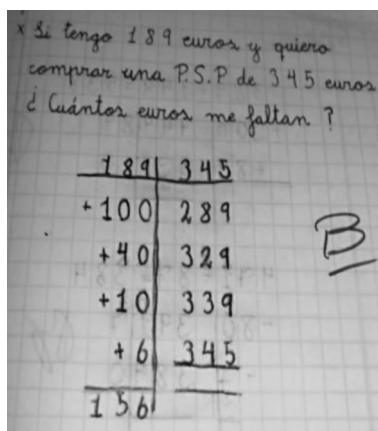 x Si tengo 189 euros y quiero
comprar una P.S.P de 345 euros
¿ Cuántos euros me faltan ?
189 345
+100 289
+40 329
+10 339
+6 345
156
B